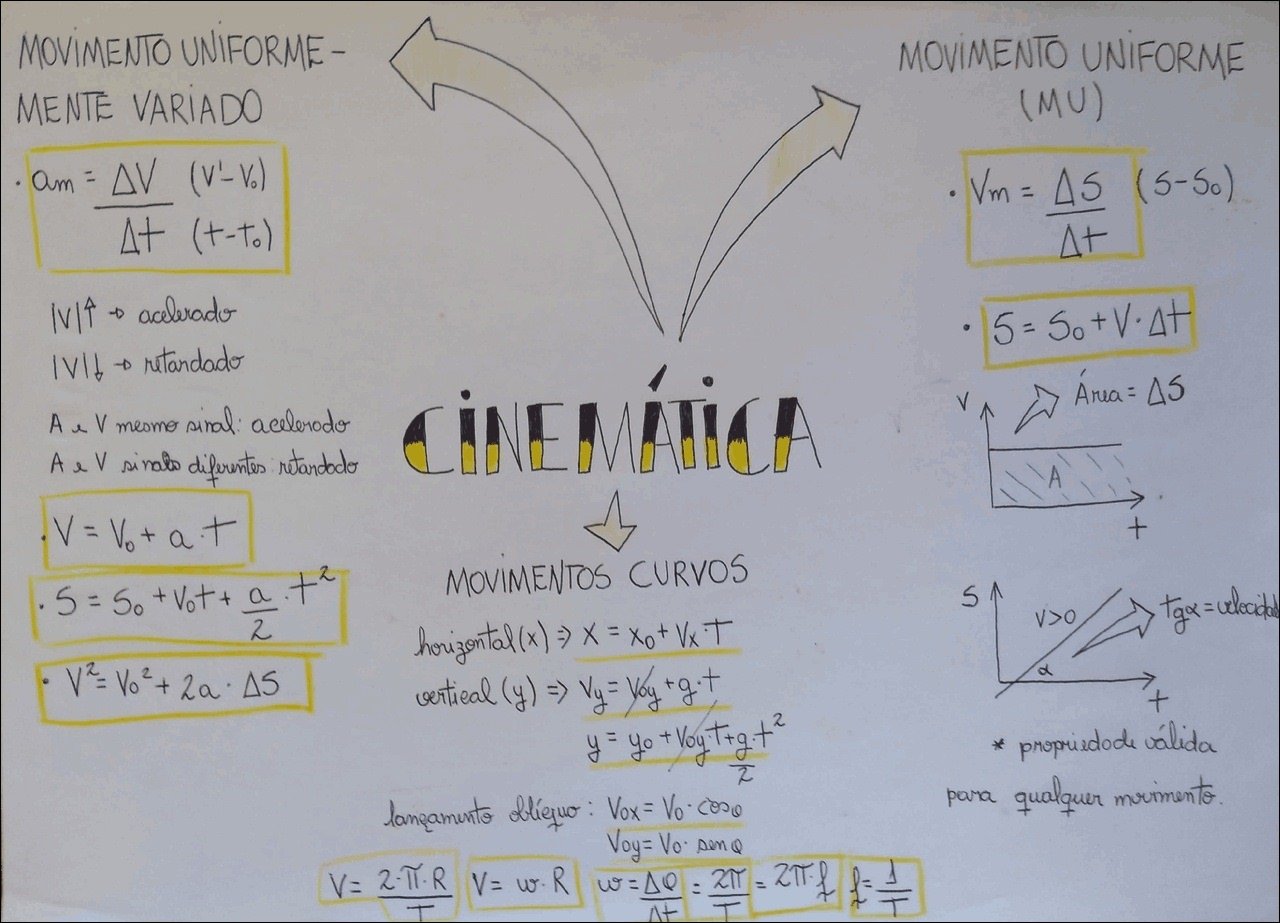 MOVIMENTO UNIFORME-
MENTE VARIADO
• am = ΔV (V'-V₀)
Δt (t-t₀)
|V|↑ → acelerado
|V|↓ → retardado
A e V mesmo sinal: acelerado
A e V sinais diferentes: retardado
• V = V₀ + a · t
• S = S₀ + V₀t + a/2 · t²
• V² = V₀² + 2a · ΔS
CINEMÁTICA
MOVIMENTOS CURVOS
horizontal (x) ⇒ x = x₀ + Vx · T
vertical (y) ⇒ Vy = Voy + g · t
y = y₀ + Voy T + g/2 · t²
lançamento oblíquo: Vox = V₀ · cosθ
Voy = V₀ · senθ
V = 2·π·R/T V = w · R w = Δθ/Δt = 2π/T = 2π·f f = 1/T
MOVIMENTO UNIFORME
(MU)
• Vm = ΔS (S-S₀)
Δt
• S = S₀ + V · Δt
V Área = ΔS
A
t
S V>0 tgα = velocidade
α
t
* propriedade válida
para qualquer movimento.